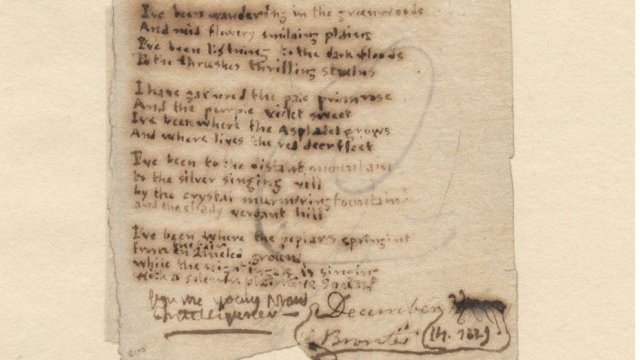 I've been wandering in the greenwoods
And mid flowery smiling plains
I've been listning to the dark floods
To the thrushes thrilling strains
I have gathered the pale primrose
And the purple violet sweet
I've been where the Asphodel grows
And where lives the red deer fleet
I've been to the distant mountain
to the silver singing rill
by the crystal murmuring fountain
and the shady verdant hill
I've been where the poplar is springing
From the fair enameled ground
while the is singing
With a plaintive sound
December
Brontë 14. 1829